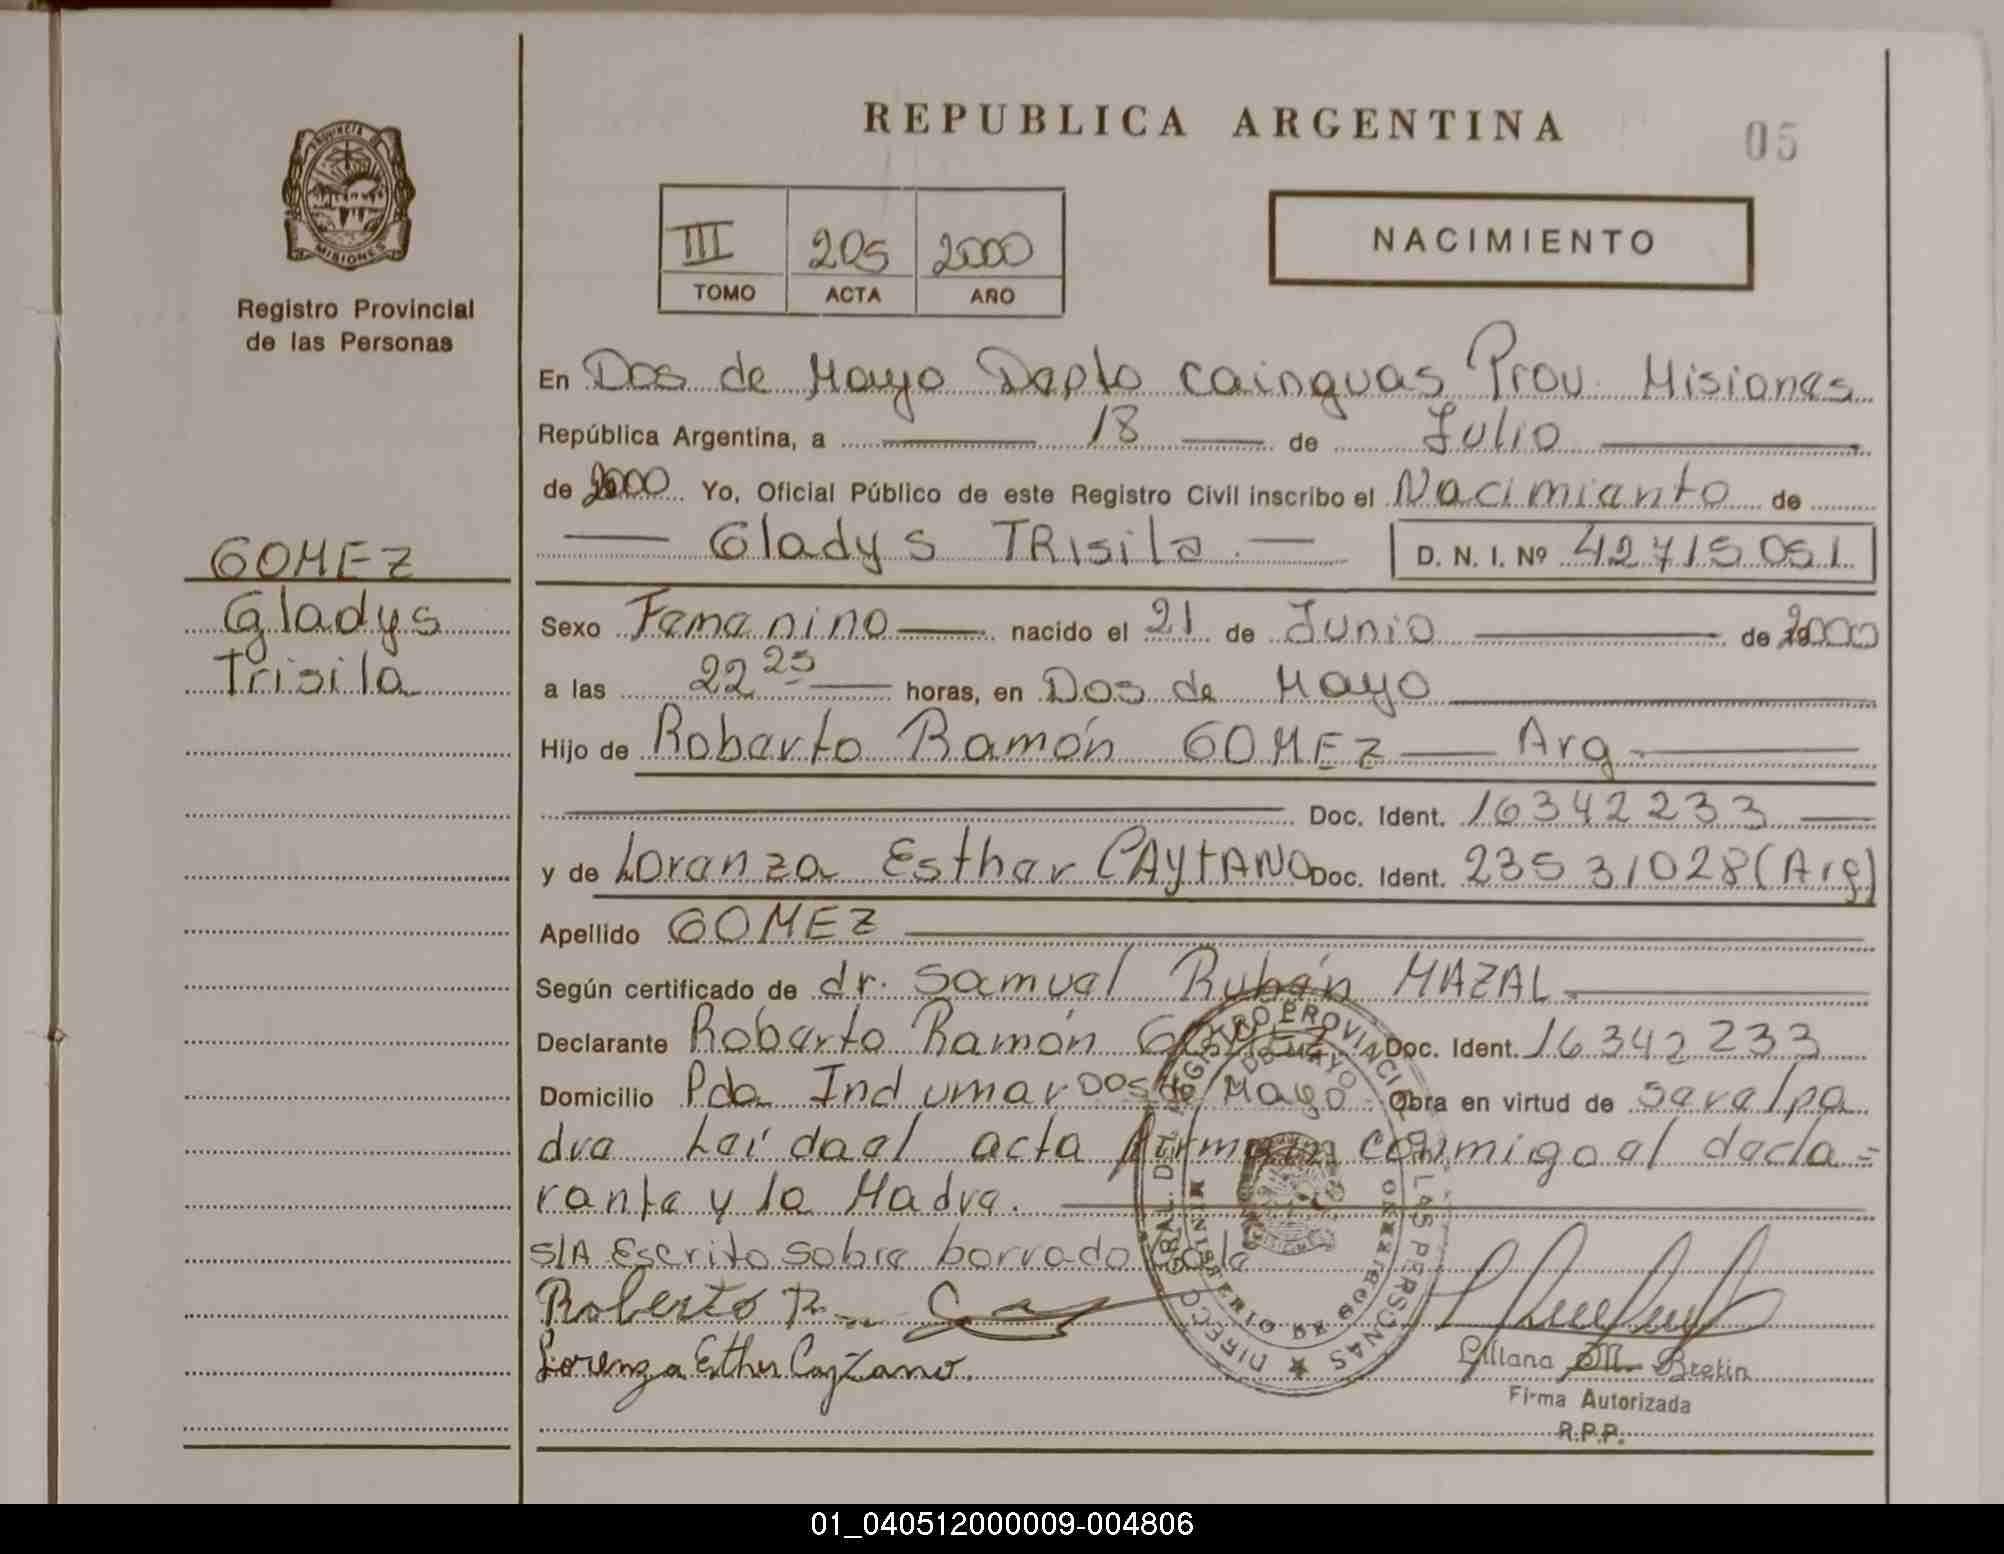 REPUBLICA ARGENTINA
05
PROVINCIA DE
MISIONES
Registro Provincial
de las Personas
III 205 2000
TOMO ACTA AÑO
NACIMIENTO
En Dos de Mayo Depto Cainguas Prov. Misiones
República Argentina, a 18 de Julio
de 2000 Yo, Oficial Público de este Registro Civil inscribo el Nacimiento de
Gladys TRisila D. N. I. Nº 42715051
GOMEZ
Gladys
Trisila
Sexo Femenino nacido el 21 de Junio de 2000
a las 22 25 horas, en Dos de Mayo
Hijo de Roberto Ramón GOMEZ Arg.
Doc. Ident. 16342233
y de Lorenza Esther CAYTANO Doc. Ident. 23531028 (Arg)
Apellido GOMEZ
Según certificado de dr. Samuel Rubén MAZAL
Declarante Roberto Ramón GOMEZ Doc. Ident. 16342233
Domicilio Pda Indumar Dos de Mayo Obra en virtud de ser el pa
dre Leída el acta firman conmigo el decla=
rante y la Madre.
S/A Escrito sobre borrado
Roberto R.
Lorenza Esther Caytano.
DIRECC. GRAL. DEL REGISTRO PROVINCIAL DE LAS PERSONAS
MINISTERIO DE GOBIERNO
DOS DE MAYO
Liliana M. Bretin
Firma Autorizada
R.P.P.
01_040512000009-004806